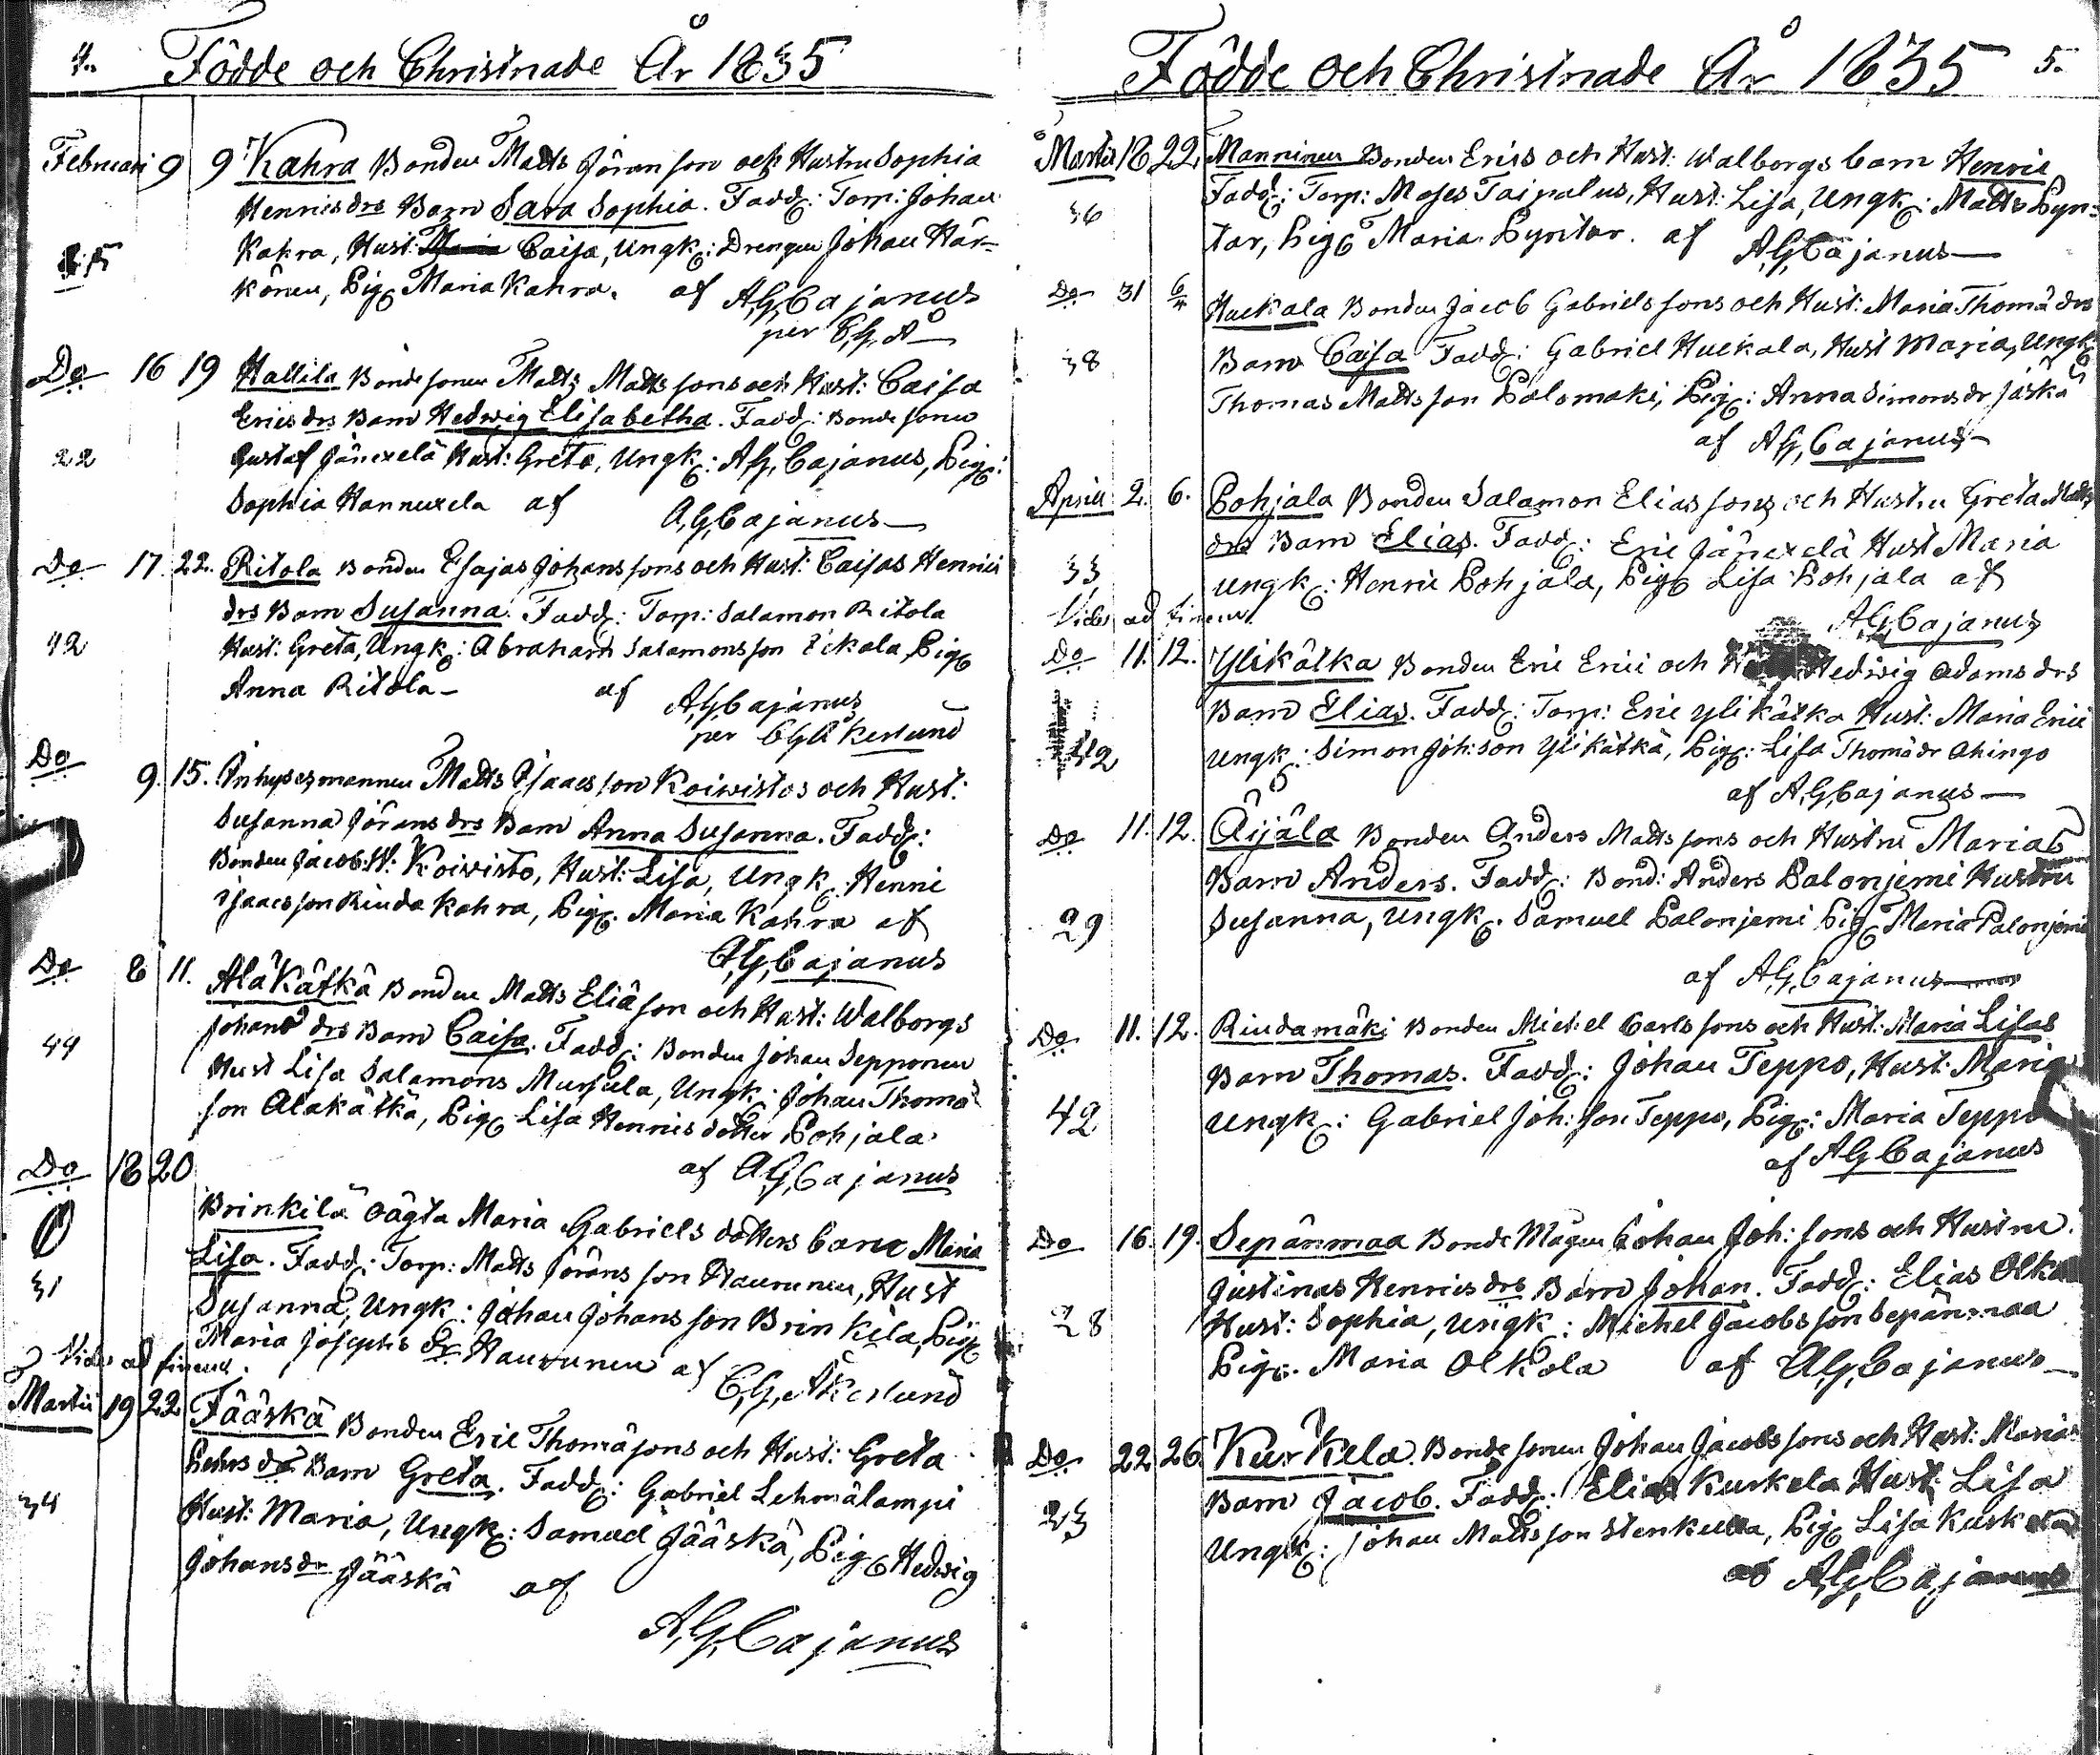 4. Födde och Christnade År 1835
Februari 9 9 Kahra Bonden Matts Jöransson och Hustru Sophia
Henricsdrs Barn Sara Sophia. Fadd: Torp: Johan
15 Kahra, Hust: Caisa, Ungk: Drengen Johan Här-
könen, Pig Maria Kahra. af A,G,Cajanus
per C,G,Å
Do 16 19 Hallila Bondesonen Matts Mattssons och Hust: Caisa
Ericsdrs Barn Hedwig Elisabetha. Fadd: Bondesonen
22 Gustaf Jänexelä Hust: Greta, Ungk: A,G,Cajanus, Pig:
Sophia Hannuxela af A,G,Cajanus
Do 17. 22. Ritola Bonden Esajas Johanssons och Hust: Caisas Henrici
drs Barn Susanna. Fadd: Torp: Salamon Ritola
42 Hust: Greta, Ungk: Abraham Salamonsson Pig
Anna Ritola af A,G,Cajanus
per C,G,Åkerlund
Do 9. 15. Inhysesmannen Matts Isaacsson Koiwistos och Hust:
Susanna Jöransdrs Barn Anna Susanna. Fadd:
Bonden Jacob: Koivisto, Hust: Lisa, Ungk: Henric
Isaacsson Rinda Kahra, Pig. Maria Kahra af
A,G,Cajanus
Do 8 11. AlaKätkä Bonden Matts Eliäson och Hust: Walborgs
Johans drs Barn Caisa. Fadd: Bonden Johan Sepponen
44 Hust Lisa Salamons Mursula, Ungk: Johan Thomæ
son Alakätkä, Pig Lisa Henricsdotter Pohjala.
af A,G,Cajanus
Do 18 20
Brinkilä oägta Maria Gabriels dotters barn Maria
Lisa. Fadd: Torp: Matts Jöransson Haurunen, Hust
31 Susanna, Ungk: Johan Johansson Brinkilä, Pig
Maria Josephs Dr Haurunen af C,G,Åkerlund
Vide ad finem.
Martii 19 22 Jääskä Bonden Eric Thomæsons och Hust: Greta
Pehrs dr Barn Greta. Fadd: Gabriel Lehmälampi
34 Hust: Maria, Ungk: Samuel Jääskä, Pig Hedwig
Johansdr Jääskä af
A,G,Cajanus
Födde och Christnade År 1835 5.
Martii 18 22. Manninen Bonden Erics och Hust: Walborgs barn Henric
Fadd: Torp: Moses Taipalus, Hust: Lisa, Ungk: Matts Pyn-
36 tar, Pig Maria Pyntar. af A,G,Cajanus
Do 31 6/4 Huckala Bonden Jacob Gabrielssons och Hust: Maria Thomädrs
38 Barn Caisa Fadd: Gabriel Huckala, Hust Maria, Ungk:
Thomas Mattsson Palomaki, Pig: Anna Simonsdr Jäskä
af A,G,Cajanus
Aprill 2. 6. Pohjala Bonden Salamon Eliassons och Hustru Greta Matts
drs Barn Elias. Fadd: Eric Jänexelä Hust Maria
33 Ungk: Henric Pohjala, Pig Lisa Pohjala af
Vide ad finem A,G,Cajanus
Do 11. 12. Ylikätka Bonden Eric Erici och Hedwig Adamsdrs
Barn Elias. Fadd: Torp: Eric ylikätka Hust: Maria Erici
42 Ungk: Simon Joh:son Ylikätkä, Pig: Lisa Thomädr Ahingo
af A,G,Cajanus
Do 11. 12. Äijälä Bonden Anders Mattssons och Hustru Marias
Barn Anders. Fadd: Bond: Anders Palonjemi Hustru
29 Susanna, Ungk. Samuel Palonjemi Pig Maria Palonjemi
af A,G,Cajanus
Do 11. 12. Rindamäki Bonden Michel Carlssons och Hust: Maria Lisas
Barn Thomas. Fadd: Johan Teppo, Hust: Maria
42 Ungk: Gabriel Joh:son Teppo, Pig: Maria Teppo
af A,G,Cajanus
Do 16. 19. Sepänmaa Bonde Mågen Johan Joh: sons och Hustru
Justinas Henricsdrs Barn Johan. Fadd: Elias
28 Hust: Sophia, Ungk: Michel Jacobsson Sepänmaa
Pig: Maria Olkola af A,G,Cajanus
Do 22 26 Kurkela Bondesonen Johan Jacobssons och Hust: Marias
Barn Jacob. Fadd: Elias Kurkela Hust: Lisa
23 Ungk: Johan Mattsson Pig Lisa Kurkela
af A,G,Cajanus